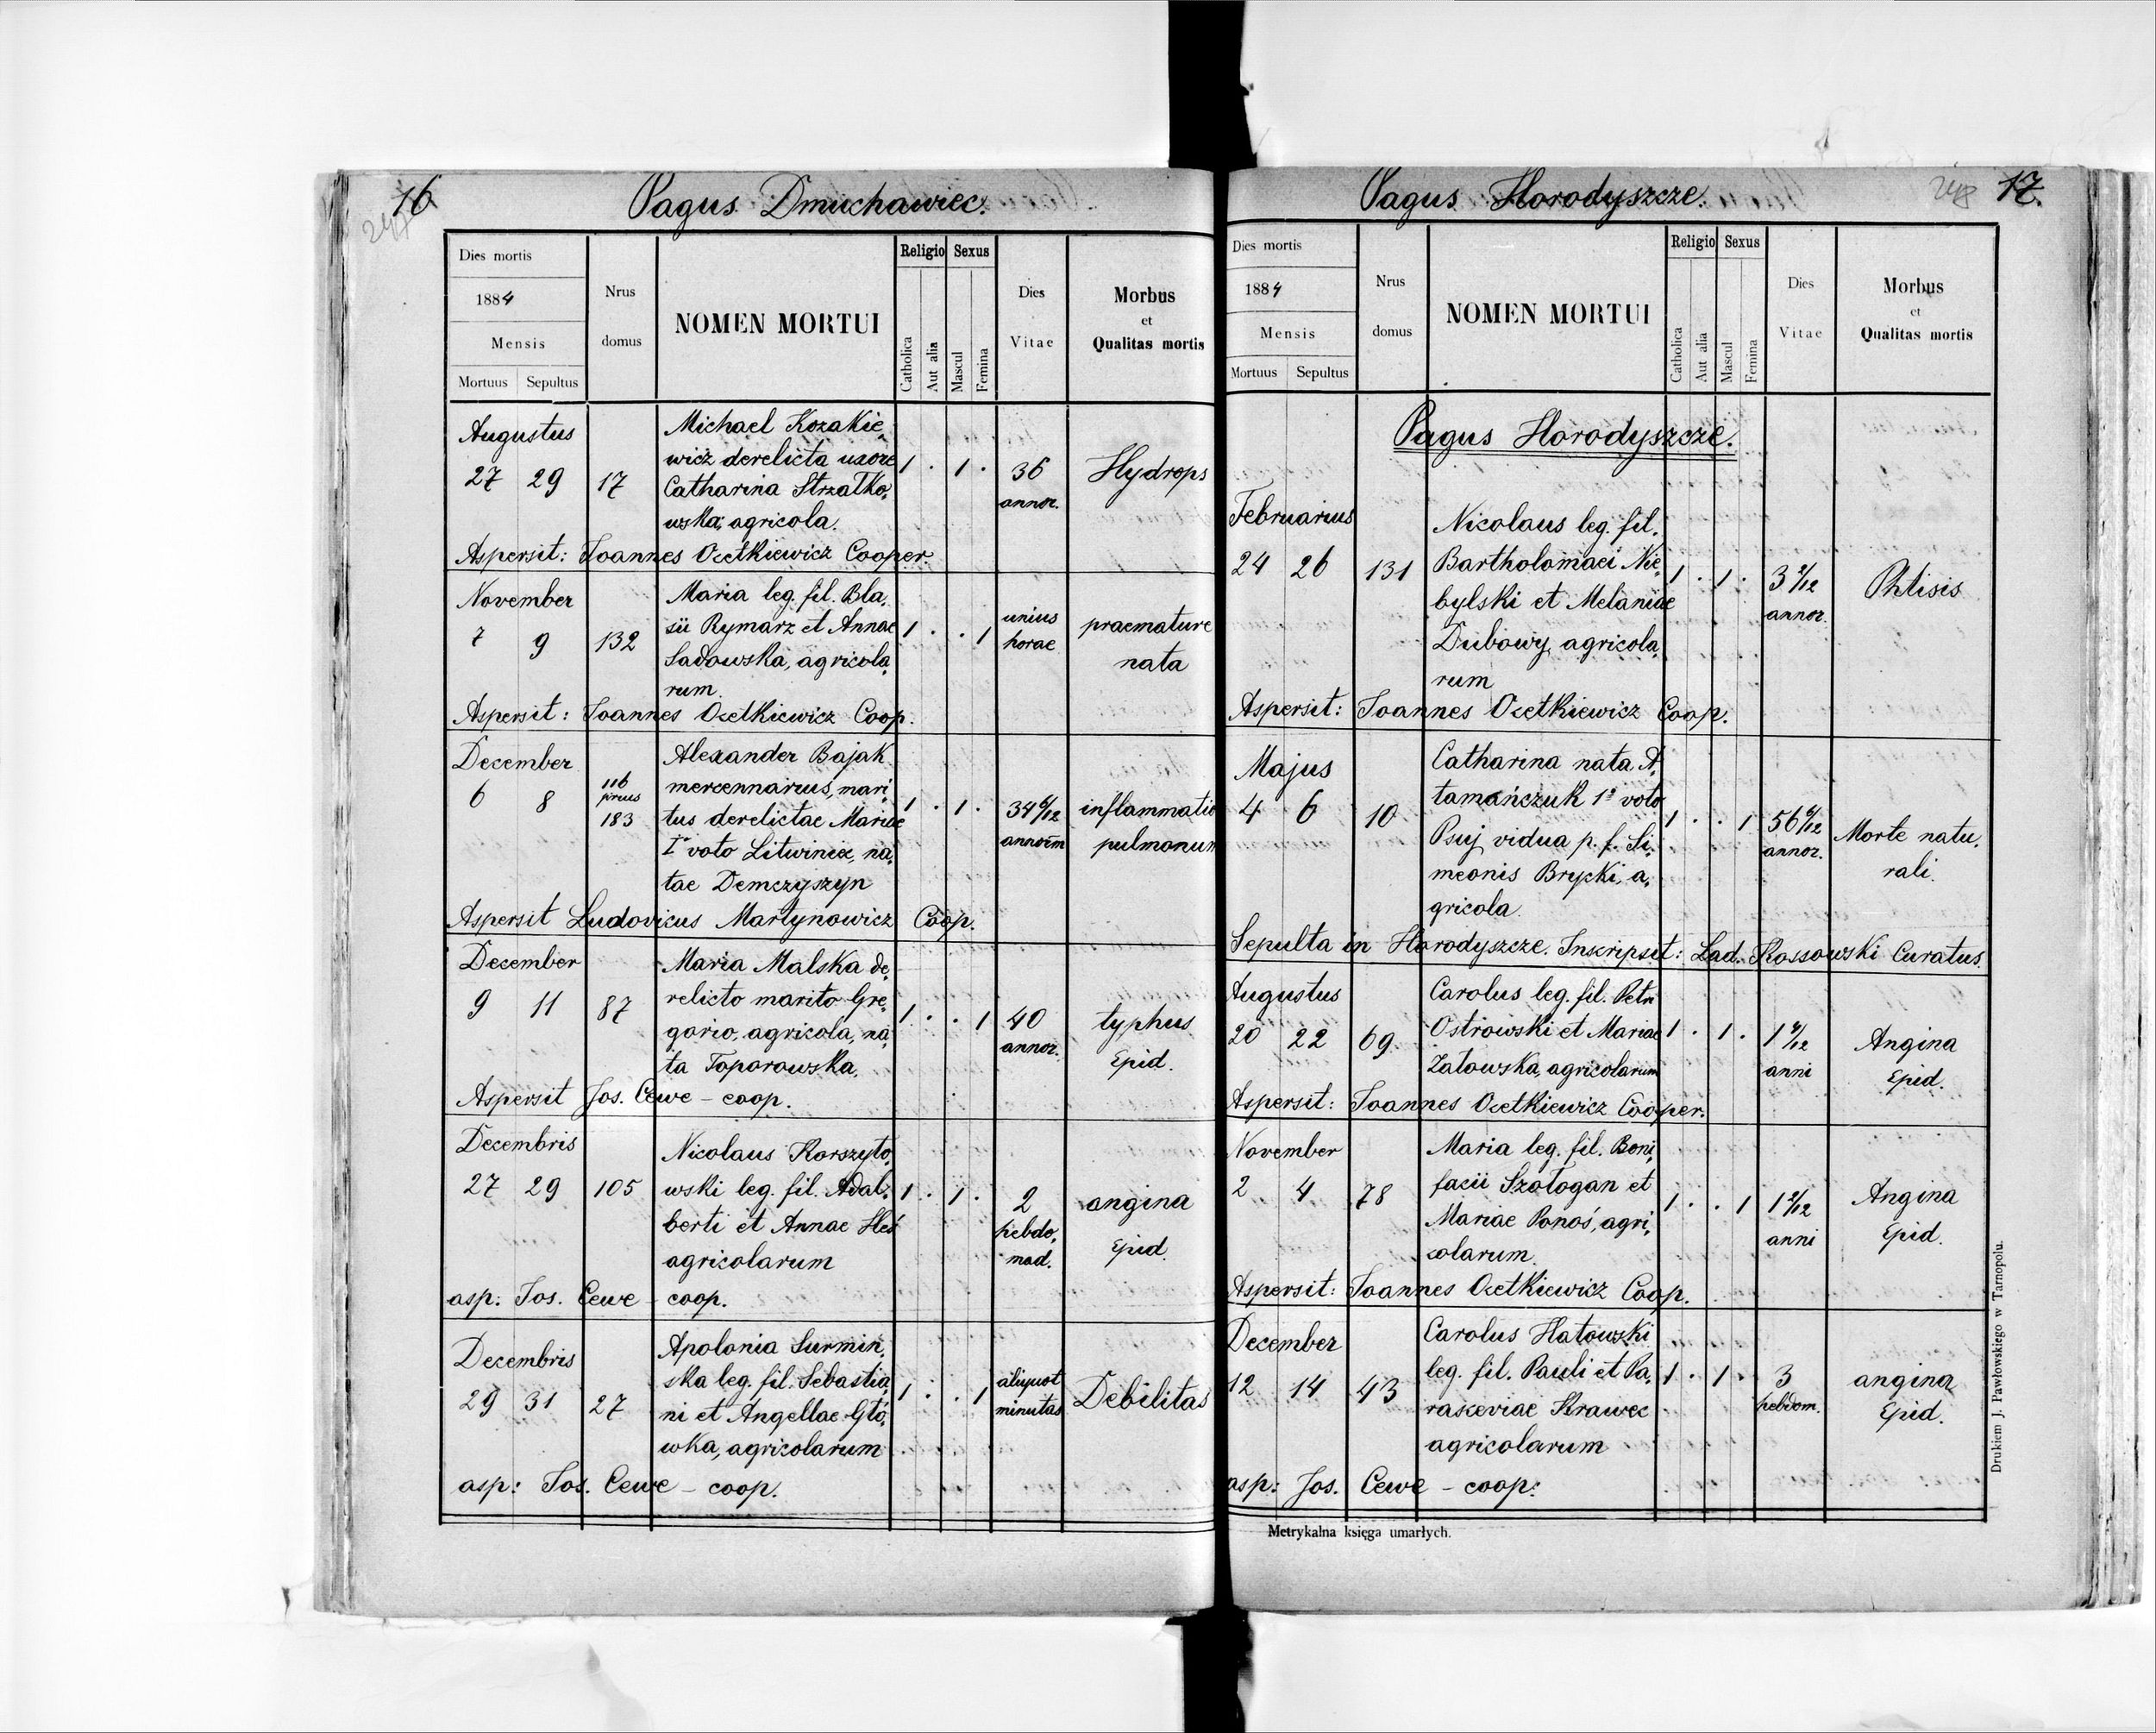 16
247
Pagus Dmuchawiec.
Dies mortis
1884
Mensis
Mortuus Sepultus
Nrus
domus
NOMEN MORTUI
Religio
Catholica
Aut alia
Sexus
Mascul
Femina
Dies
Vitae
Morbus
et
Qualitas mortis
Augustus
27 29 17
Michael Kozakie„
wicz derelicta uxore
Catharina Strzałko„
wska; agricola.
1 . 1 .
36
annor.
Hydrops
Aspersit: Joannes Ocetkiewicz Cooper.
November
7 9 132
Maria leg. fil. Bla„
sii Rymarz et Annae
Sadowska, agricola„
rum.
1 . . 1
unius
horae
praemature
nata
Aspersit: Joannes Ocetkiewicz Coop.
December
6 8
116
prius
183
Alexander Bajak
mercennarius, mari„
tus derelictae Mariae
I° voto Litwiniec, na„
tae Demczyszyn
1 . 1 .
34 6/12
annorum
inflammatio
pulmonum
Aspersit Ludovicus Martynowicz Coop.
December
9 11 87
Maria Malska de„
relicto marito Gre„
gorio, agricola, na„
ta Toporowska.
1 . . 1
40
annor.
typhus
Epid.
Aspersit Jos. Cewe – coop.
Decembris
27 29 105
Nicolaus Korszyło„
wski leg. fil. Adal„
berti et Annae Heś
agricolarum
1 . 1 .
2
hebdo„
mad.
angina
Epid.
asp: Jos. Cewe – coop.
Decembris
29 31 27
Apolonia Surmiń„
ska leg. fil. Sebastia„
ni et Angellae Głó„
wka, agricolarum
1 . . 1
aliquot
minutas
Debilitas
asp: Jos. Cewe – coop.
Pagus Horodyszcze.
248
17.
Dies mortis
1884
Mensis
Mortuus Sepultus
Nrus
domus
NOMEN MORTUI
Religio
Catholica
Aut alia
Sexus
Mascul
Femina
Dies
Vitae
Morbus
et
Qualitas mortis
Pagus Horodyszcze.
Februarius
24 26 131
Nicolaus leg. fil.
Bartholomaei Nie„
bylski et Melaniae
Dubowy, agricola„
rum
1 . 1 .
3 2/12
annor.
Phtisis
Aspersit: Joannes Ocetkiewicz Coop.
Majus
4 6 10
Catharina nata A„
tamańczuk 1° voto
Psuj vidua p. f. Si„
meonis Brycki, a„
gricola.
1 . . 1
56 6/12
annor.
Morte natu„
rali.
Sepulta in Horodyszcze. Inscripsit: Lad. Kossowski Curatus.
Augustus
20 22 69
Carolus leg. fil. Petri
Ostrowski et Mariae
Załowska, agricolarum
1 . 1 .
anni
Angina
Epid.
Aspersit: Joannes Ocetkiewicz Cooper.
November
2 4 78
Maria leg. fil. Boni„
facii Szołogan et
Mariae Ponoś, agri„
colarum.
1 . . 1
1 2/12
anni
Angina
Epid.
Aspersit: Joannes Ocetkiewicz Coop.
December
12 14 43
Carolus Hałowski
leg. fil. Pauli et Pa„
rasceviae Krawec
agricolarum
1 . 1 .
3
hebdom.
angina
Epid.
asp: Jos. Cewe – coop:
Metrykalna księga umarłych.
Drukiem J. Pawłowskiego w Tarnopolu.